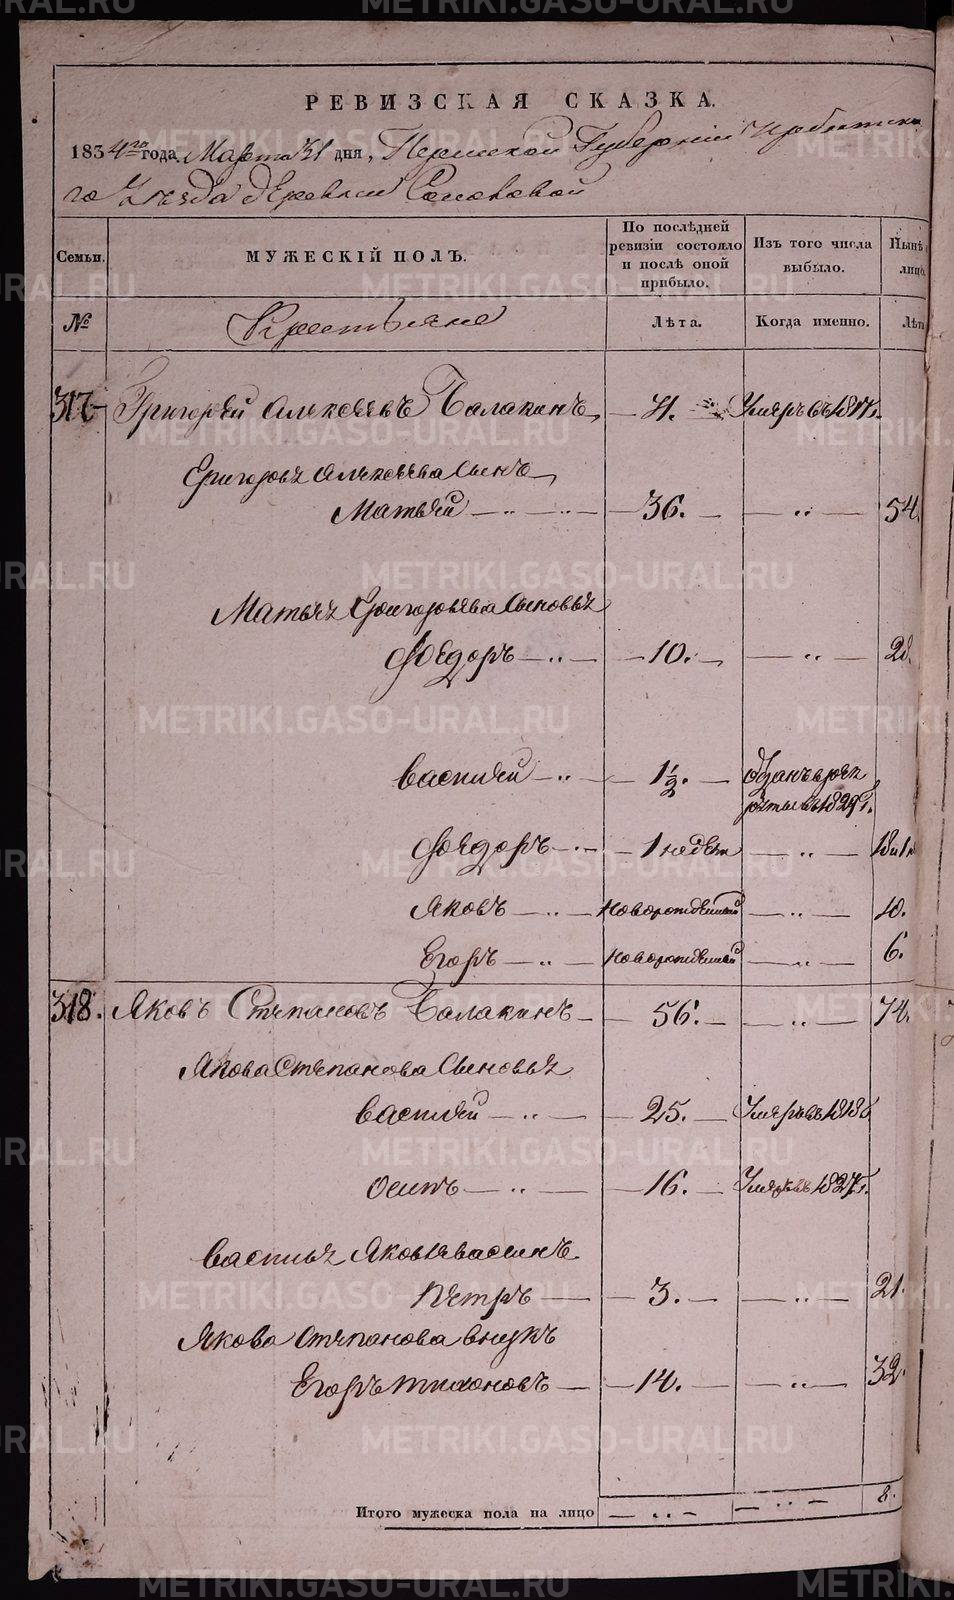 РЕВИЗСКАЯ СКАЗКА.
1834го года Марта 31 дня, Пермской Губернiи Ирбитска
го Уезда деревни
Семьи.
МУЖЕСКIЙ ПОЛЪ.
По послѣдней ревизiи состояло и послѣ оной прибыло.
Изъ того числа выбыло.
Нынѣ лицо.
№
Крестьяне
Лѣта.
Когда именно.
Лѣта
317 Григорей Алексеевъ Балакинъ — 71. Умеръ въ 1817г.
Григорья Алексеева Сынъ
Матвей — 36. — „ — 54.
Матвея Григорьева Сыновья
Феодоръ — „ — 10. — „ — 28.
василей — „ — 1½. —
въ 1829 г.
Феодоръ — „ — 1 недел — „ — 18
Яковъ — „ — новорожденный — „ — 10.
Егоръ — „ — новорожденный — „ — 6.
318. Яковъ Степановъ Балакинъ — 56. — „ — 74.
Якова Степанова Сыновья
василей — „ — 25. — Умеръ въ 1818
осипъ — „ — 16. — Умеръ въ 1827г.
василья Яковлева сынъ
Петръ — 3. — „ — 21.
Якова Степанова внукъ
Егоръ тихоновъ — 14. — „ — 32.
Итого мужеска пола на лицо — „ — — „ — 8.
METRIKI.GASO-URAL.RU